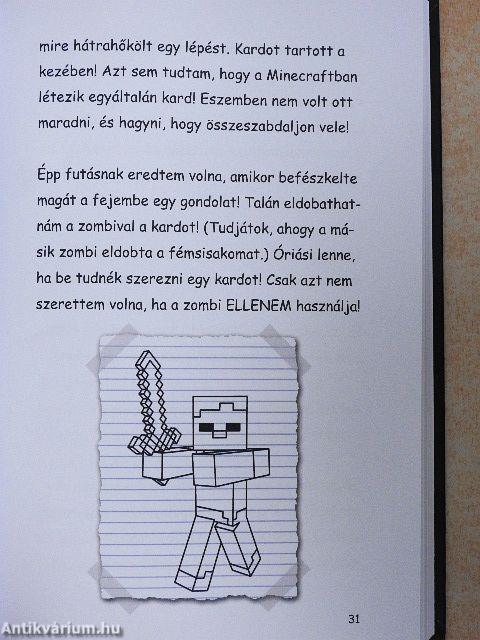 mire hátrahőkölt egy lépést. Kardot tartott a
kezében! Azt sem tudtam, hogy a Minecraftban
létezik egyáltalán kard! Eszemben nem volt ott
maradni, és hagyni, hogy összeszabdaljon vele!
Épp futásnak eredtem volna, amikor befészkelte
magát a fejembe egy gondolat! Talán eldobathat-
nám a zombival a kardot! (Tudjátok, ahogy a má-
sik zombi eldobta a fémsisakomat.) Óriási lenne,
ha be tudnék szerezni egy kardot! Csak azt nem
szerettem volna, ha a zombi ELLENEM használja!
31
Antikvárium.hu